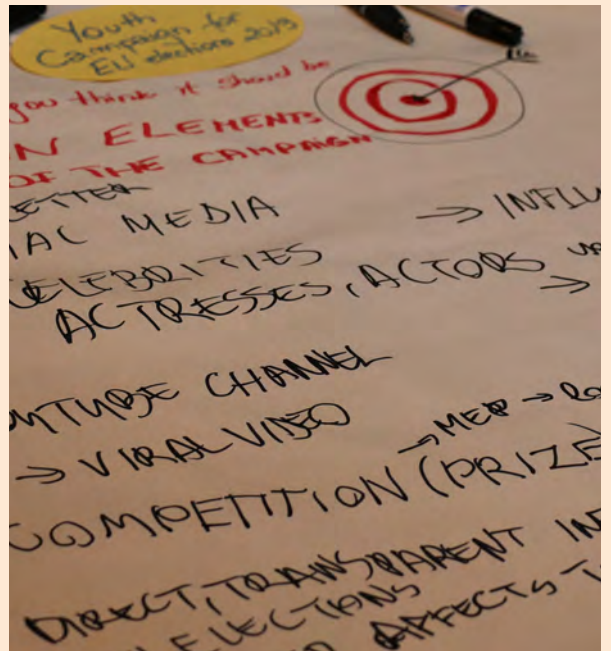 Youth
Campaign for
EU elections 2019
you think it should be
N ELEMENTS
OF THE CAMPAIGN
ETTER
IAL MEDIA → INFLU
CELEBRITIES
ACTRESSES, ACTORS →
OUTUBE CHANNEL
→ VIRAL VIDEO
→ MEP →
COMPETITION (PRIZE)
DIRECT, TRANSPARENT IN
ELECTIONS
AFFECTS